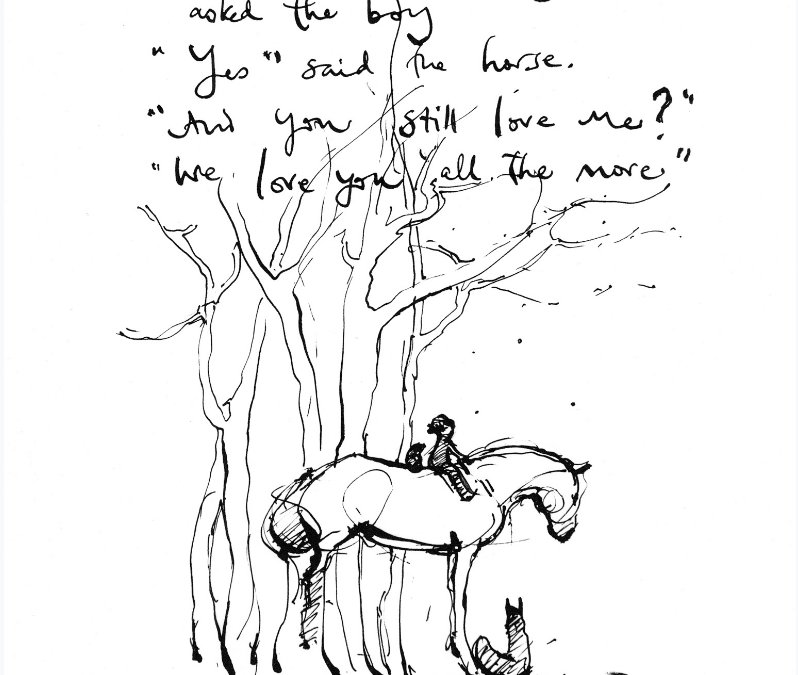 asked the boy
"Yes" said the horse.
"And you still love me?"
"We love you all the more"